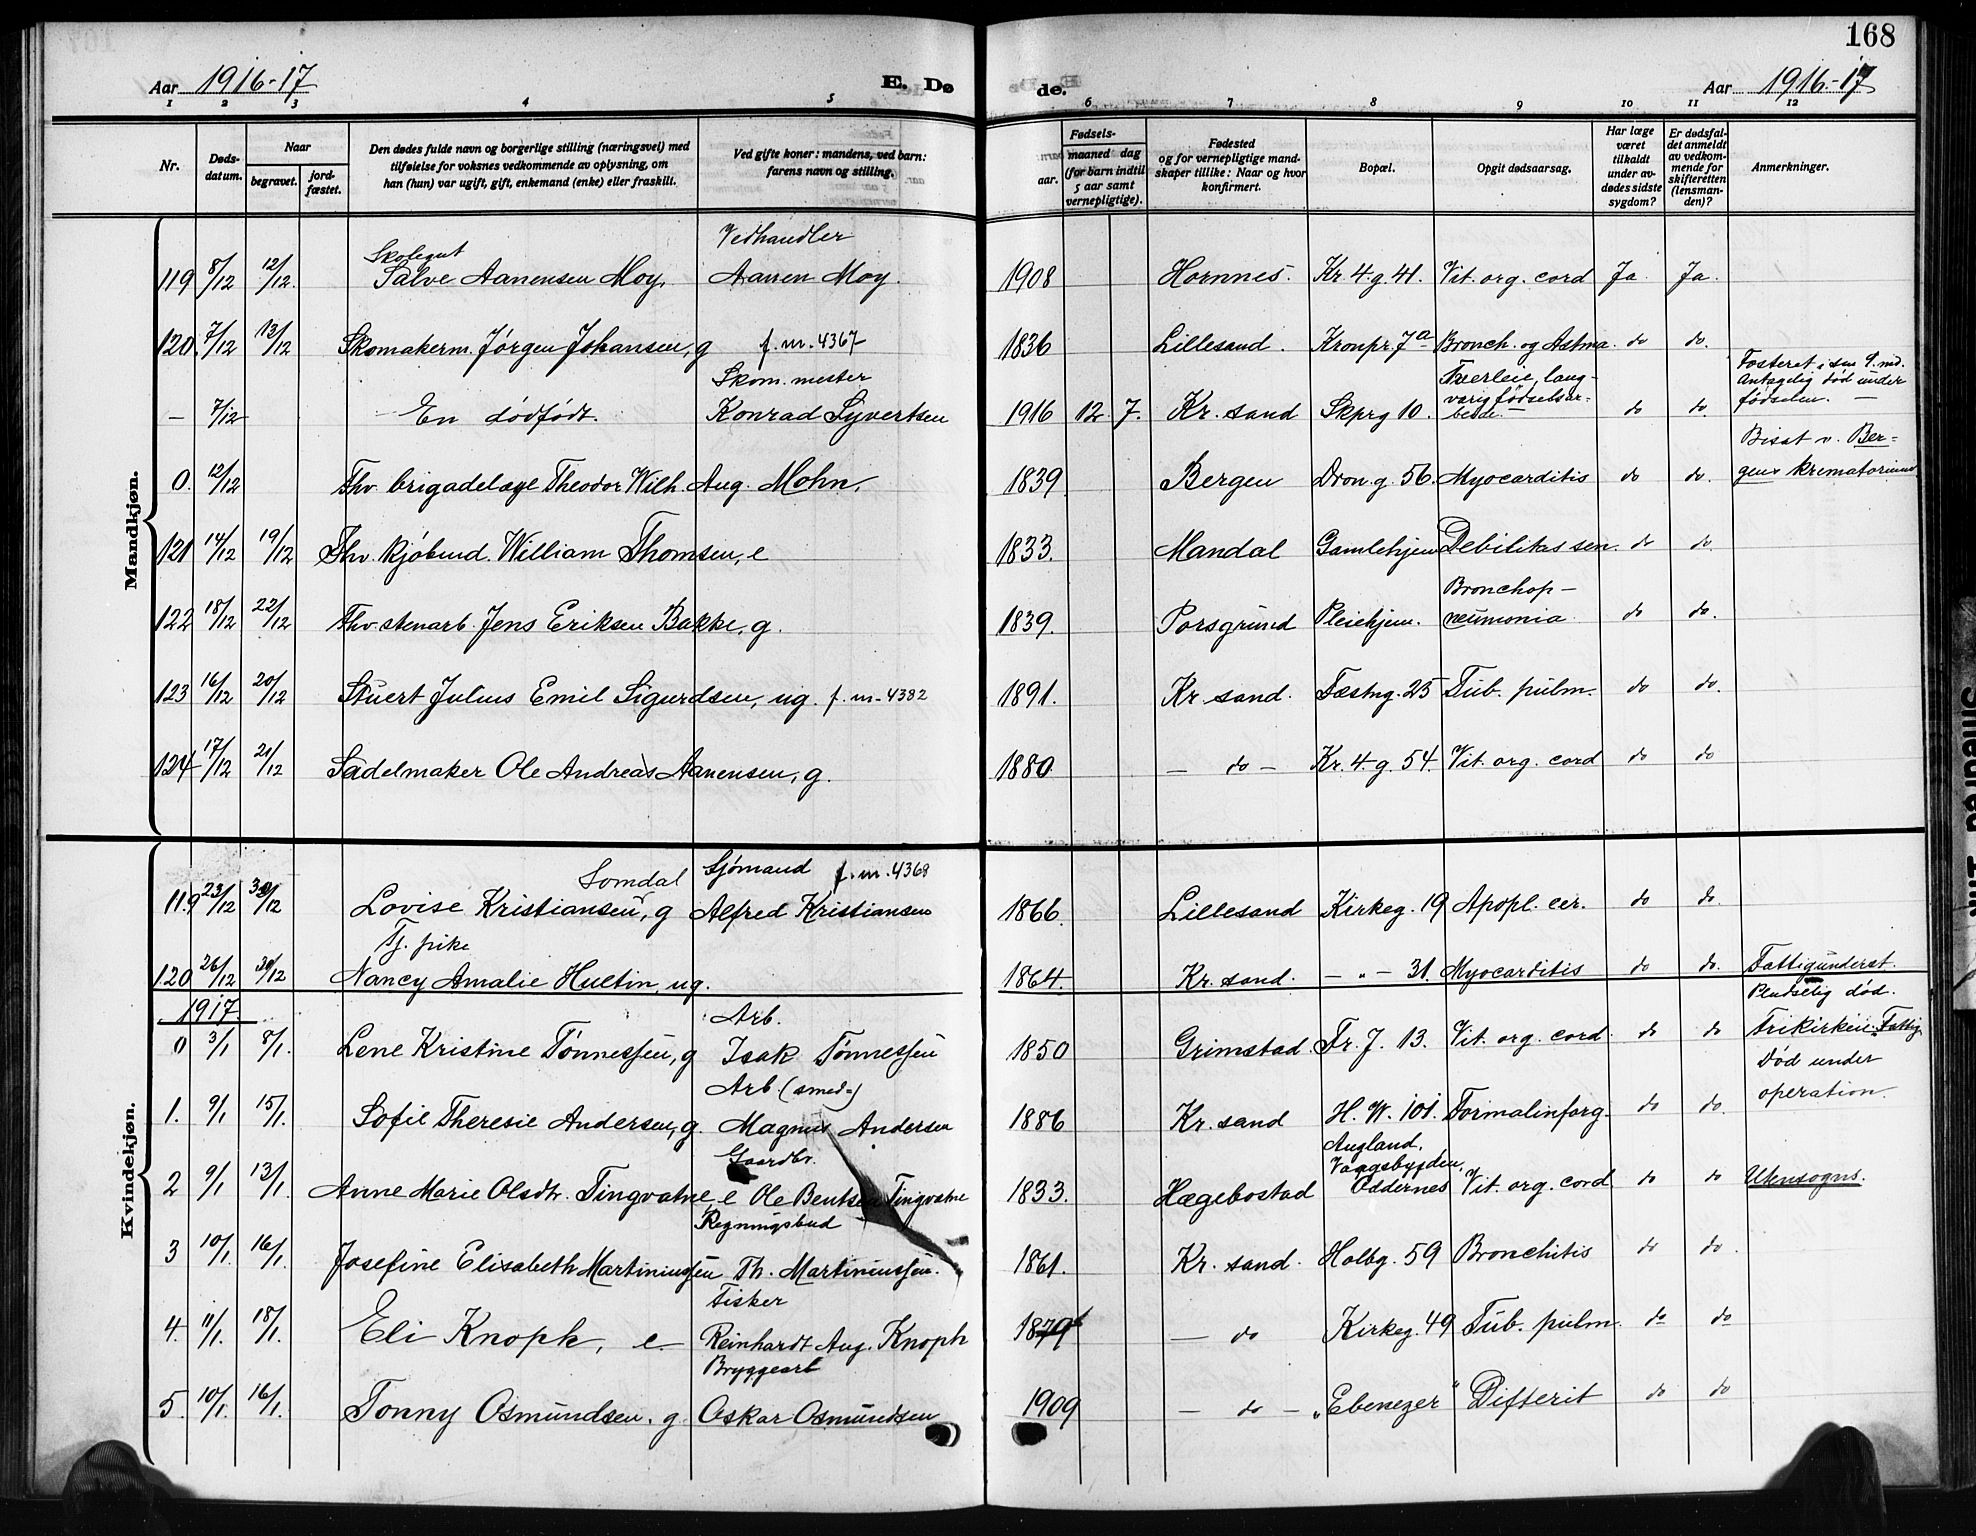 168
Aar 1916-17 E. Dø de. Aar 1916-17
1 2 3 4 5 6 7 8 9 10 11 12
Nr.
Døds-
datum.
Naar
begravet.
jord-
fæstet.
Den dødes fulde navn og borgerlige stilling (næringsvei) med
tilføielse for voksnes vedkommende av oplysning, om
han (hun) var ugift, gift, enkemand (enke) eller fraskilt.
Ved gifte koner: mandens, ved barn:
farens navn og stilling.
Fødsels-
aar.
maaned dag
(for barn indtil
5 aar samt
vernepligtige).
Fødested
og for vernepligtige mand-
skaper tillike: Naar og hvor
konfirmert.
Bopæl.
Opgit dødsaarsag.
Har læge
været
tilkaldt
under av-
dødes sidste
sygdom?
Er dødsfal-
det anmeldt
av vedkom-
mende for
skifteretten
(lensman-
den)?
Anmerkninger.
Mandkjøn.
Skolegut Vedhandler
119 8/12 12/12. Salve Aanensen Moy. Aanen Moy. 1908 Hornnes. Kr. 4. g. 41. Vit. org. cord Ja. Ja.
120 7/12 13/12 Skomakerm. Jørgen Johansen, g f. m. 4367 1836 Lillesand. Kronpr. 7a Bronch. og Astma. do do.
Skom. mester Tverleie, lang- Fosteret i sin 9. md.
varig fødselsar- Antagelig død under
— 7/12 En dødfødt. Konrad Syvertsen 1916 12 7. Kr. sand Skprg 10. beide. — do do. fødselen. —
Bisat v. Ber-
0. 12/12 Fhv. brigadelæge Theodor Wilh. Aug. Mohn. 1839 Bergen Dron. g. 56. Myocarditis do do. gens krematorium
121 14/12 19/12 Fhv. kjøbmd. William Thomsen, e 1833. Mandal Gamlehjem Debilitas sen. do do.
Bronchop-
122 18/12 22/12 Fhv. stenarb. Jens Eriksen Bakke, g. 1839. Porsgrund Pleiehjem. neumonia do do.
123 16/12 20/12 Stuert Julius Emil Sigurdsen, ug. f. m. 4382 1891. Kr. sand. Fæstng. 25 Tub. pulm. do do.
124 17/12 21/12 Sadelmaker Ole Andreas Aanensen, g. 1880 — do — Kr. 4. g. 54. Vit. org. cord do do
Kvindekjøn.
Somdal Sjømand f. m. 4368
119 23/12 30/12 Lovise Kristiansen, g Alfred Kristiansen 1866. Lillesand Kirkeg. 19 Apopl. cer. do do.
Tj. pike
120 26/12 30/12 Nancy Amalie Hultin, ug. 1864. Kr. sand. — " — 31. Myocarditis do do. Fattigunderst.
1917. Arb. Pludselig død.
0 3/1 8/1. Lene Kristine Tønnessen, g Isak Tønnessen 1850 Grimstad Fr. J. 13. Vit. org. cord. do do Frikirken. Fattig
Arb (smed-) Død under
1. 9/1 15/1. Sofie Theresie Andersen, g. Magnus Andersen 1886 Kr. sand H. W. 101. Formalinforg. do do. operation.
Gaardbr. Augland,
Vaagsbygden,
2 9/1 13/1. Anne Marie Olsdtr. Tingvatne, e Ole Bentsen Tingvatne 1833. Hægebostad Oddernes Vit. org. cord do do Utensogns.
Regningsbud
3 10/1. 16/1. Josefine Elisabeth Martiniussen Th. Martiniussen. 1861. Kr. sand. Holbg. 59 Bronchitis do do.
Fisker
4. 11/1. 18/1. Eli Knoph, e — Reinhardt Aug. Knoph 1879 — do Kirkeg. 49 Tub. pulm. do do
Bryggearb
5. 10/1. 16/1. Tonny Osmundsen. g. Oskar Osmundsen 1909 — do — "Ebenezer" Difterit do do